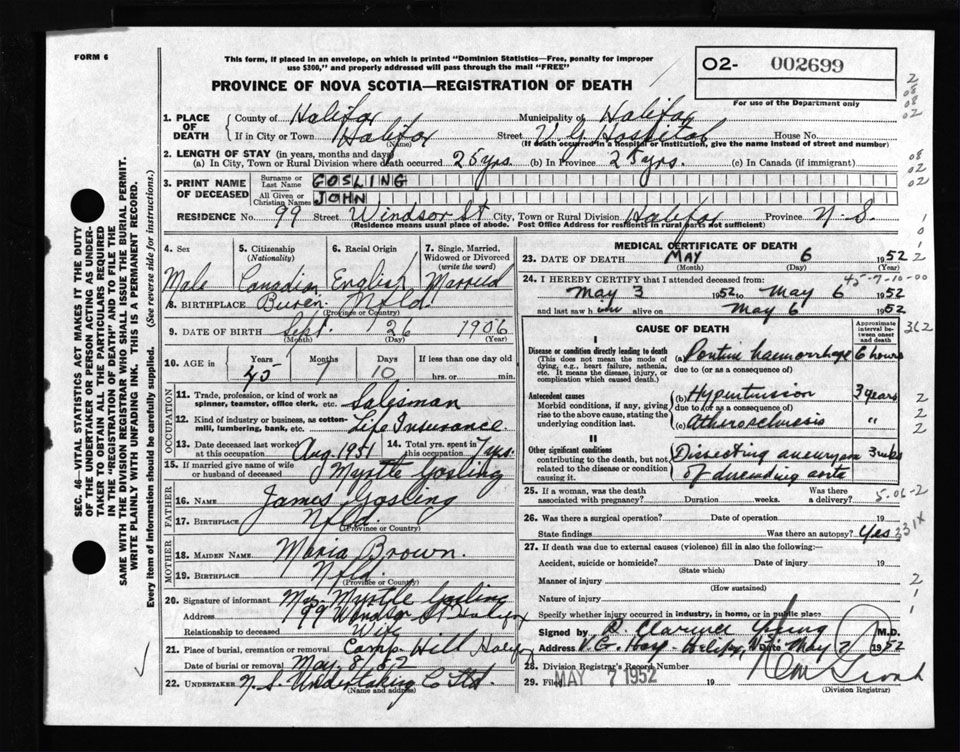 FORM 6
This form, if placed in an envelope, on which is printed "Dominion Statistics—Free, penalty for improper
use $300," and properly addressed will pass through the mail "FREE"
O2- 002699
PROVINCE OF NOVA SCOTIA—REGISTRATION OF DEATH
For use of the Department only
1. PLACE OF DEATH
County of Halifax Municipality of Halifax
If in City or Town Halifax Street V.G. Hospital House No.
(Name) (If death occurred in a hospital or institution, give the name instead of street and number)
2. LENGTH OF STAY (in years, months and days)
(a) In City, Town or Rural Division where death occurred 25 yrs. (b) In Province 25 yrs. (c) In Canada (if immigrant)
3. PRINT NAME OF DECEASED
Surname or Last Name GOSLING
All Given or Christian Names JOHN
RESIDENCE No. 99 Street Windsor St City, Town or Rural Division Halifax Province N.S.
(Residence means usual place of abode. Post Office Address for residents in rural parts not sufficient)
4. Sex Male
5. Citizenship (Nationality) Canadian
6. Racial Origin English
7. Single, Married, Widowed or Divorced (write the word) Married
8. BIRTHPLACE Buren Nfld.
(Province or Country)
9. DATE OF BIRTH Sept. 26 1906
(Month) (Day) (Year)
10. AGE in Years 45 Months 7 Days 10 If less than one day old hrs. or min.
OCCUPATION
11. Trade, profession, or kind of work as spinner, teamster, office clerk, etc. Salesman
12. Kind of industry or business, as cotton-mill, lumbering, bank, etc. Life Insurance.
13. Date deceased last worked at this occupation Aug 1951
14. Total yrs. spent in this occupation 7 yrs.
15. If married give name of wife or husband of deceased Myrtle Gosling
FATHER
16. NAME James Gosling
17. BIRTHPLACE Nfld.
(Province or Country)
MOTHER
18. MAIDEN NAME Maria Brown.
19. BIRTHPLACE Nfld.
(Province or Country)
20. Signature of informant Mrs. Myrtle Gosling
Address 99 Windsor St Halifax
Relationship to deceased Wife
21. Place of burial, cremation or removal Camp Hill Halifax
Date of burial or removal May 8/52
22. UNDERTAKER N.S. Undertaking Co Ltd.
(Name and address)
MEDICAL CERTIFICATE OF DEATH
23. DATE OF DEATH MAY 6 1952
(Month) (Day) (Year)
24. I HEREBY CERTIFY that I attended deceased from: 45-7-10-00
May 3 1952 to May 6 1952
and last saw him alive on May 6 1952
CAUSE OF DEATH
Approximate interval between onset and death
I
Disease or condition directly leading to death
(This does not mean the mode of dying, e.g., heart failure, asthenia, etc. It means the disease, injury, or complication which caused death.)
(a) Pontine haemorrhage 6 hours
due to (or as a consequence of)
Antecedent causes
Morbid conditions, if any, giving rise to the above cause, stating the underlying condition last.
(b) Hypertension 3 years
due to (or as a consequence of)
(c) Atherosclerosis "
II
Other significant conditions
contributing to the death, but not related to the disease or condition causing it.
Dissecting aneurysm 3 wks
of descending aorta
25. If a woman, was the death associated with pregnancy? Duration weeks. Was there a delivery?
5.06-2
26. Was there a surgical operation? Date of operation 19
State findings Was there an autopsy? Yes
27. If death was due to external causes (violence) fill in also the following:—
Accident, suicide or homicide? Date of injury 19
(State which)
Manner of injury
(How sustained)
Nature of injury
Specify whether injury occurred in industry, in home, or in public place
Signed by Clarence M.D.
Address V.G. Hosp. Halifax, N.S. Date May 7 1952
28. Division Registrar's Record Number
29. Filed MAY 7 1952 19
(Division Registrar)
SEC. 46—VITAL STATISTICS ACT MAKES IT THE DUTY
OF THE UNDERTAKER OR PERSON ACTING AS UNDER-
TAKER TO OBTAIN ALL THE PARTICULARS REQUIRED
IN THE "REGISTRATION OF DEATH" AND TO FILE THE
SAME WITH THE DIVISION REGISTRAR WHO SHALL ISSUE THE BURIAL PERMIT.
WRITE PLAINLY WITH UNFADING INK. THIS IS A PERMANENT RECORD.
Every item of information should be carefully supplied. (See reverse side for instructions.)